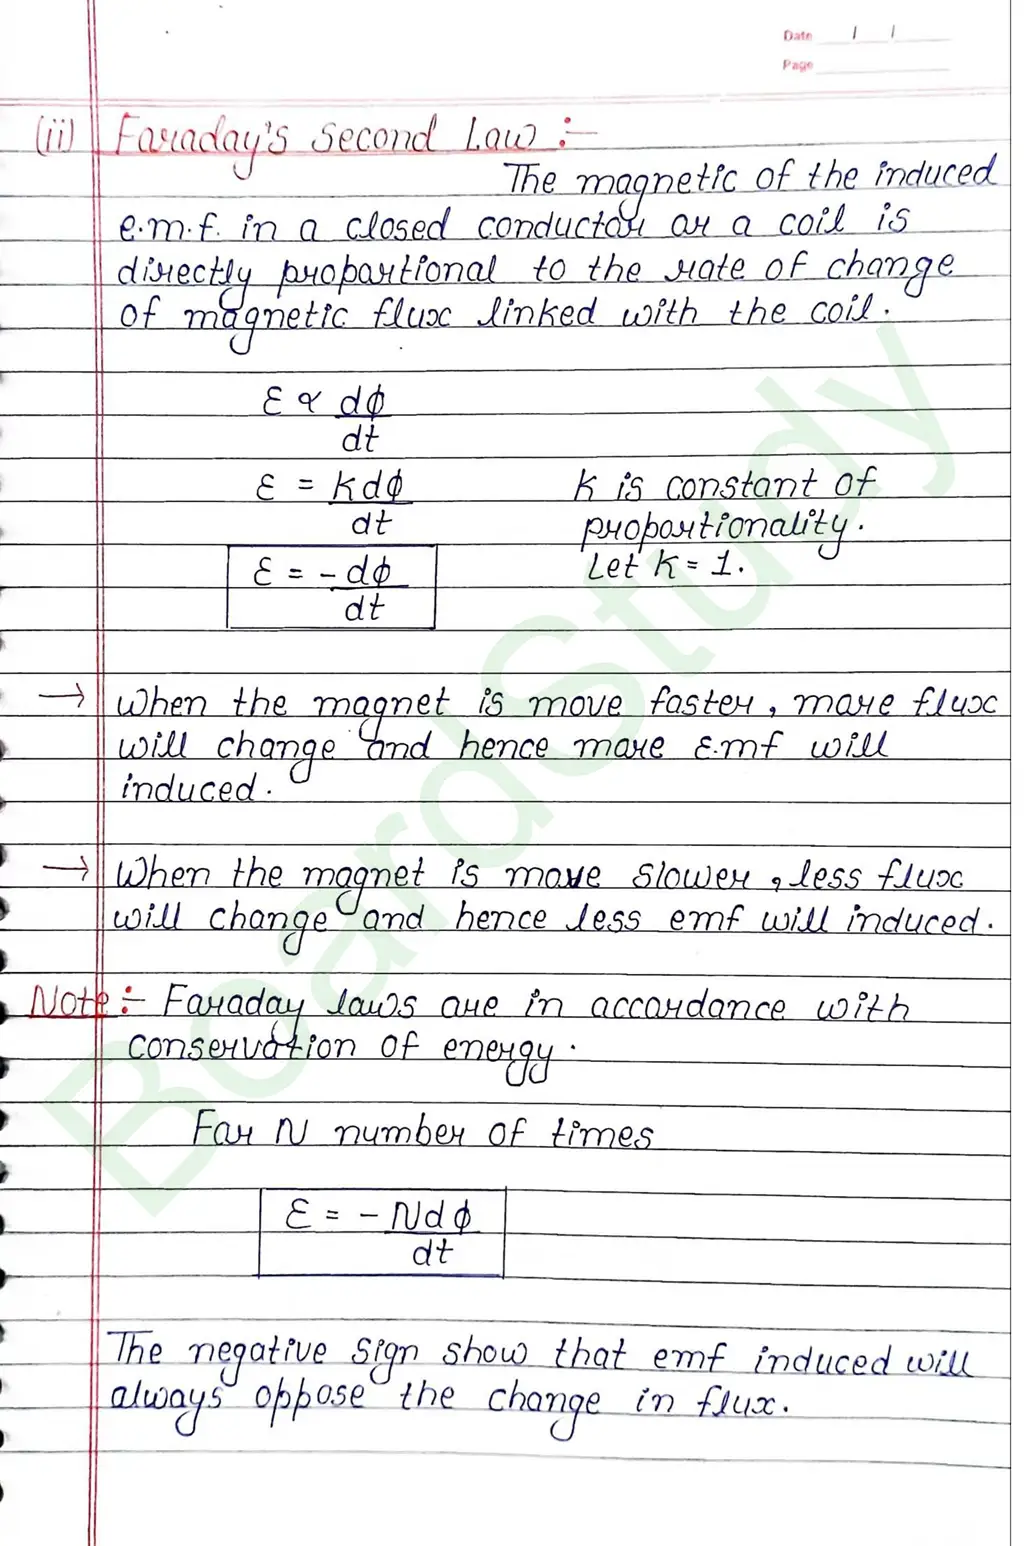 Date / /
Page
(ii) Faraday's Second Law :-
The magnetic of the induced
e.m.f. in a closed conductor or a coil is
directly proportional to the rate of change
of magnetic flux linked with the coil.
ε ∝ dϕ
dt
ε = Kdϕ K is constant of
dt proportionality.
ε = -dϕ Let K = 1.
dt
→ When the magnet is move faster, more flux
will change and hence more ε.mf will
induced.
→ When the magnet is move slower, less flux
will change and hence less emf will induced.
Note :- Faraday laws are in accordance with
conservation of energy.
For N number of times
ε = - Ndϕ
dt
The negative sign show that emf induced will
always oppose the change in flux.
BoardStudy